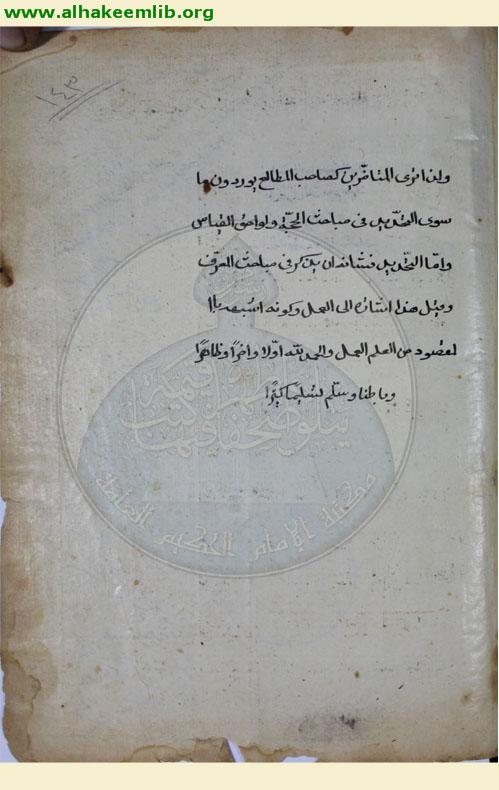 www.alhakeemlib.org
١٤٣
ولذا ترى المتأخرين كصاحب المطالع يوردون ما
سوى التحديد في مباحث الحجة ولواحق القياس
واما التحديد فشانه ان يذكر في مباحث المعرف
وقيل هذا اشارة الى العمل وكونه اشبه بالم
لمقصود من العلم العمل والحمد لله اولا وآخرًا وظاهرًا
وباطنا وسلم تسليمًا كثيرًا
مكتبة الإمام الحكيم العامة